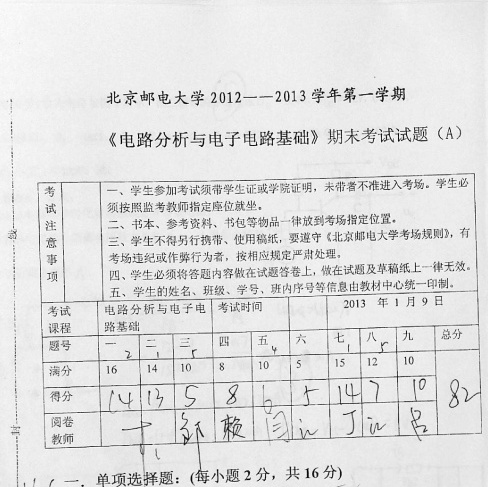 北京邮电大学 2012——2013 学年第一学期
《电路分析与电子电路基础》期末考试试题（A）
考试注意事项
一、学生参加考试须带学生证或学院证明，未带者不准进入考场。学生必
须按照监考教师指定座位就坐。
二、书本、参考资料、书包等物品一律放到考场指定位置。
三、学生不得另行携带、使用稿纸，要遵守《北京邮电大学考场规则》，有
考场违纪或作弊行为者，按相应规定严肃处理。
四、学生必须将答题内容做在试题答卷上，做在试题及草稿纸上一律无效。
五、学生的姓名、班级、学号、班内序号等信息由教材中心统一印制。
考试课程 电路分析与电子电路基础 考试时间 2013 年 1 月 9 日
题号 一 二 三 四 五 六 七 八 九 总分
2 1 5 4 1 5
满分 16 14 10 8 10 5 15 12 10
得分 14 13 5 8 6 5 14 7 10 82
阅卷教师 赖 丁 吕
一．单项选择题：(每小题 2 分，共 16 分)